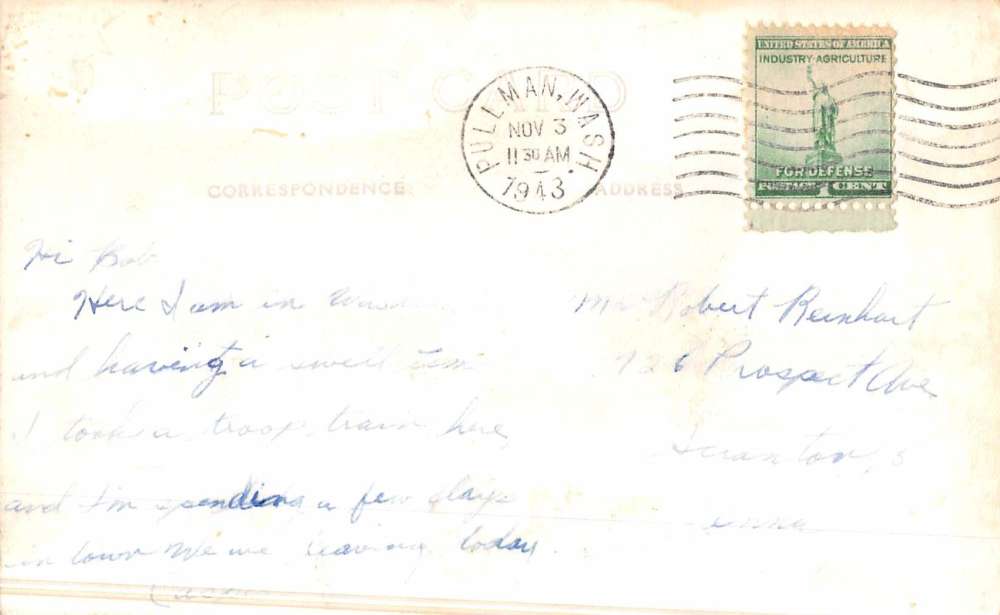 POST CARD
PULLMAN, WASH.
NOV 3
11 30 AM
1943
UNITED STATES OF AMERICA
INDUSTRY·AGRICULTURE
FOR DEFENSE
POSTAGE 1 CENT
CORRESPONDENCE
ADDRESS
Hi Bob
Here I am in
and having a swell
I took a troop train here
and I'm spending a few days
in town We are leaving today.
Mr Robert Reinhart
726 Prospect Ave
Scranton, 5
enna